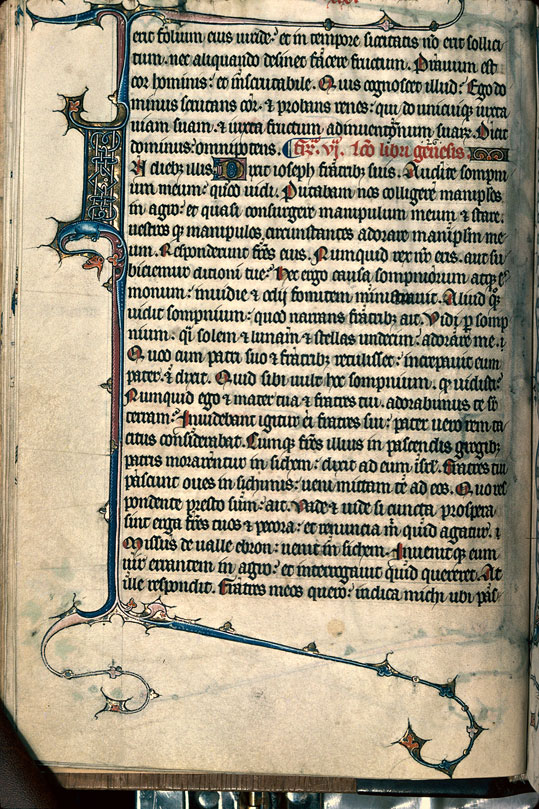 erit folium eius uiride· et in tempore siccitatis nō erit sollici
tum· nec aliquando desinet facere fructum. Prauum est
cor hominis· et inscrutabile. Quis cognoscet illud· Ego do
minus scrutans cor· & probans renes· qui do unicuiq; iuxta
uiam suam· & iuxta fructum adinuentionum suarꝝ. Dicit
dominus omnipotens. lco libri genesis.
In dieb; illis· Dixit ioseph fratrib; suis. Audite sompni
um meum· quod uidi. Putabam nos colligere maniplos
in agro· et quasi consurgere manipulum meum & stare·
uestros q; manipulos circumstantes adorare maniplum me
um. Responderunt fr̄es eius. Numquid rex nr̄ eris· aut su
biciemur dicioni tue· Hec ergo causa sompniorum atq; s̾
monum· inuidie & odij fomitem ministrauit. Aliud q;
uidit sompnium· quod narrans fratrib; ait. Vidi p̱ somp
nium· q̄i solem & lunam & stellas undecim· adorare me.
Quod cum patri suo & fratrib; retulisset· increpauit eum
pater & dixit. Quid sibi uult hoc sompnium· qd̄ uidisti·
Numquid ego & mater tua & fratres tui· adorabimus te sr̄
terram· Inuidebant igitur ei fratres sui· pater uero rem ta
citus considerabat. Cumq; fr̄es illius in pascendis gregib;
patris morarentur in sichem· dixit ad eum isrl̄. Fratres tui
pascunt oues in sichimis· ueni mittam te ad eos. Quo res
pondente presto sum· ait. Vade & uide si cuncta prospera
sint erga fr̄es tuos & pecora· et renuncia m̄ quid agatur.
Missus de ualle ebron· uenit in sichem. Inuenit q; eum
uir errantem in agro· et interrogauit quid quereret. At
ille respondit. Fratres meos quero· indica michi ubi pas